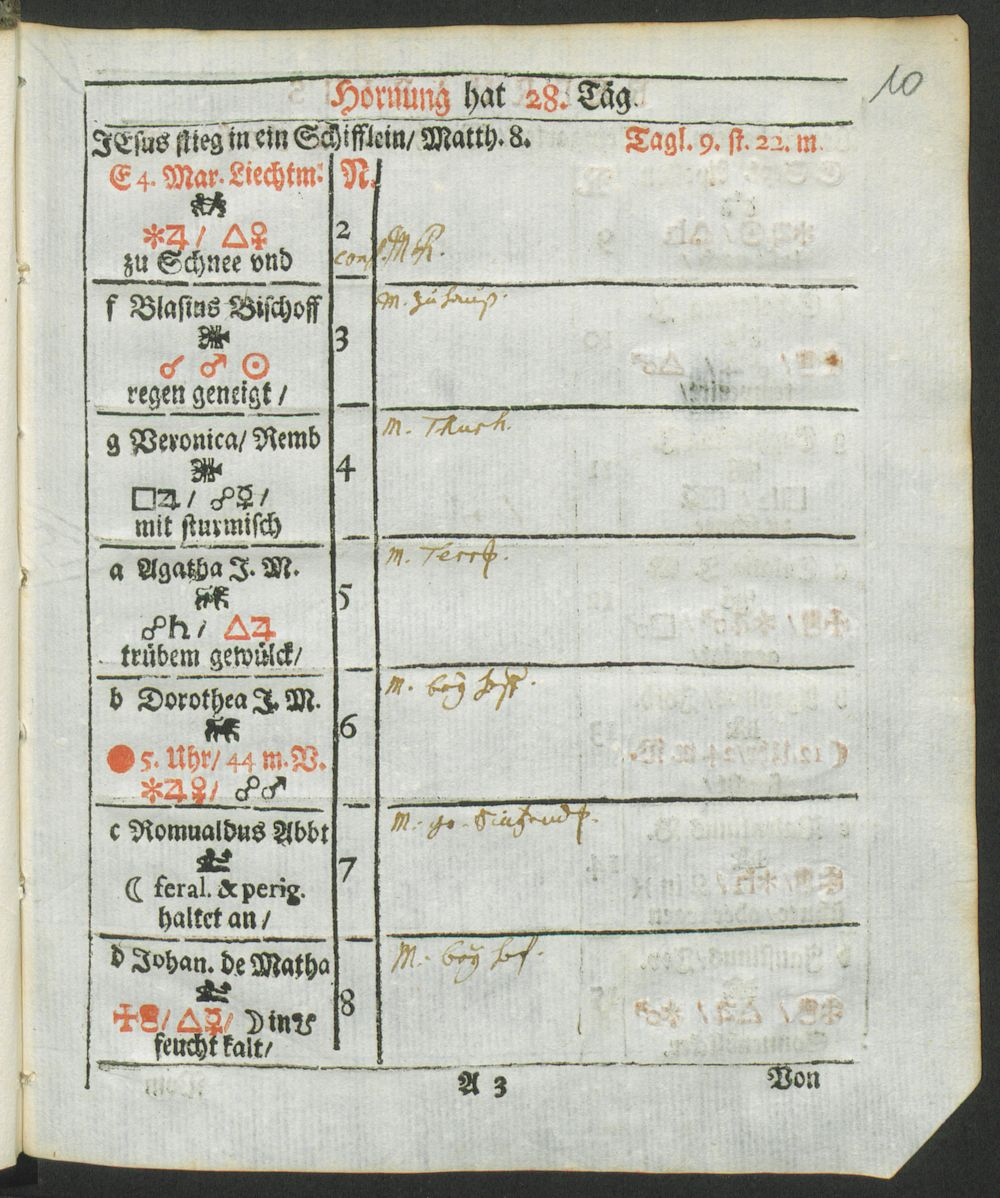 10
Hornung hat 28. Täg.
JEsus stieg in ein Schifflein/ Matth. 8. Tagl. 9. st. 22. m.
E 4. Mar. Liechtm: N.
✻♃ / △♀ 2
zu Schnee vnd M. R.
f Blasius Bischoff M. zu hauß.
☌ ♂ ☉ 3
regen geneigt /
g Veronica/ Remb M. Thurh.
□♃ / ☍☿ / 4
mit sturmisch
a Agatha J. M. M.
☍♄ / △♃ 5
trübem gewülck/
b Dorothea J. M. M. bey
● 5. Uhr/ 44 m. V. 6
✻♃♀/ ☍♂
c Romualdus Abbt M.
☾ feral. & perig. 7
haltet an /
d Johan. de Matha M. bey
△☿/ ☽ in ♉ 8
feucht kalt/
A 3 Von